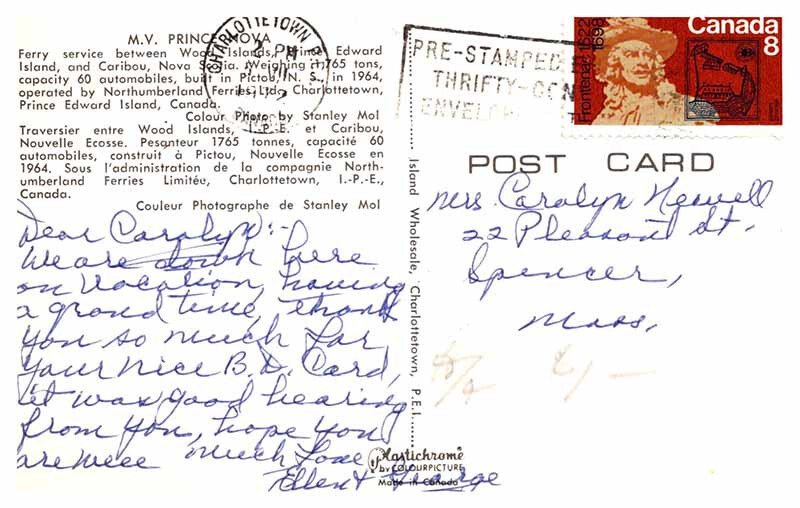 M.V. PRINCE NOVA
Ferry service between Wood Islands, Prince Edward
Island, and Caribou, Nova Scotia. Weighing 1765 tons,
capacity 60 automobiles, built in Pictou, N. S., in 1964,
operated by Northumberland Ferries Ltd., Charlottetown,
Prince Edward Island, Canada.
Colour Photo by Stanley Mol
Traversier entre Wood Islands, I.-P.-E. et Caribou,
Nouvelle Ecosse. Pesanteur 1765 tonnes, capacité 60
automobiles, construit à Pictou, Nouvelle Ecosse en
1964. Sous l'administration de la compagnie North-
umberland Ferries Limitée, Charlottetown, I.-P.-E.,
Canada.
Couleur Photographe de Stanley Mol
Dear Carolyn:-
We are down here
on vacation, having
a grand time, thank
you so much for
your nice B.D. Card,
it was good hearing
from you, hope you
are well much love
Ellen & George
CHARLOTTETOWN P
PM
PRE-STAMPED
THRIFTY-
ENVELOP
Canada
8
Frontenac 1622
1698
POST CARD
Mrs. Carolyn Newell
22 Pleasant St.
Spencer,
Mass.
Island Wholesale, Charlottetown, P.E.I.
Plastichrome®
by COLOURPICTURE
Made in Canada